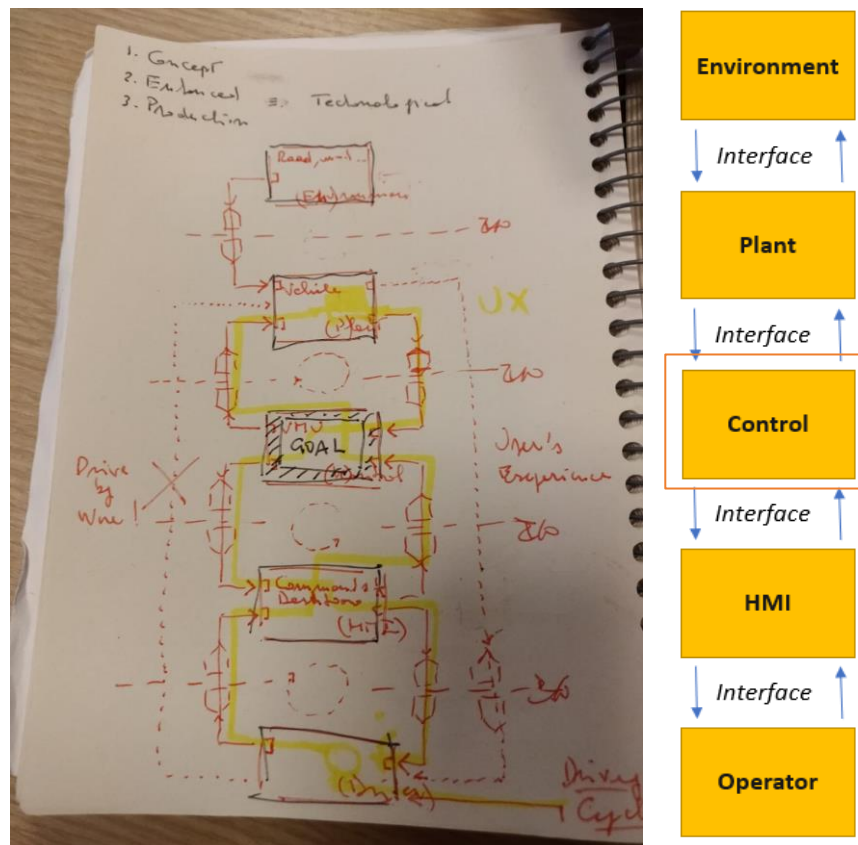 1. Concept
2. Enhanced => Technological
3. Production
Road, wind...
(Environment)
I/O
Vehicle
UX
(Plant)
I/O
VMU
GOAL
(Control)
User's
Experience
Drive
by
Wire!
I/O
Commands
Dashboard
(HMI)
I/O
(Driver)
Driving
Cycle
Environment
Interface
Plant
Interface
Control
Interface
HMI
Interface
Operator